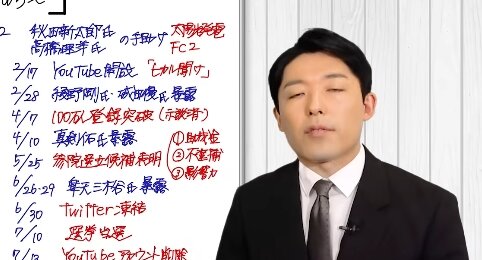 2 秋田新太郎氏 太陽光発電
高橋理洋氏 の手助け FC2
2/17 YouTube開設「ヒカル聞け」
2/28 綾野剛氏・城田優氏 暴露
4/7 100万人登録突破(示談者)
4/10 真剣佑氏暴露 ①助成金
5/25 参院選立候補表明 ②不逮捕
6/26-29 楽天三木谷氏暴露 ③影響力
6/30 Twitter凍結
7/10 選挙当選
YouTubeアカウント削除